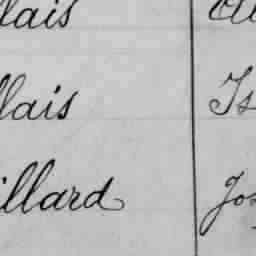 llais
llais Is
illard Jos